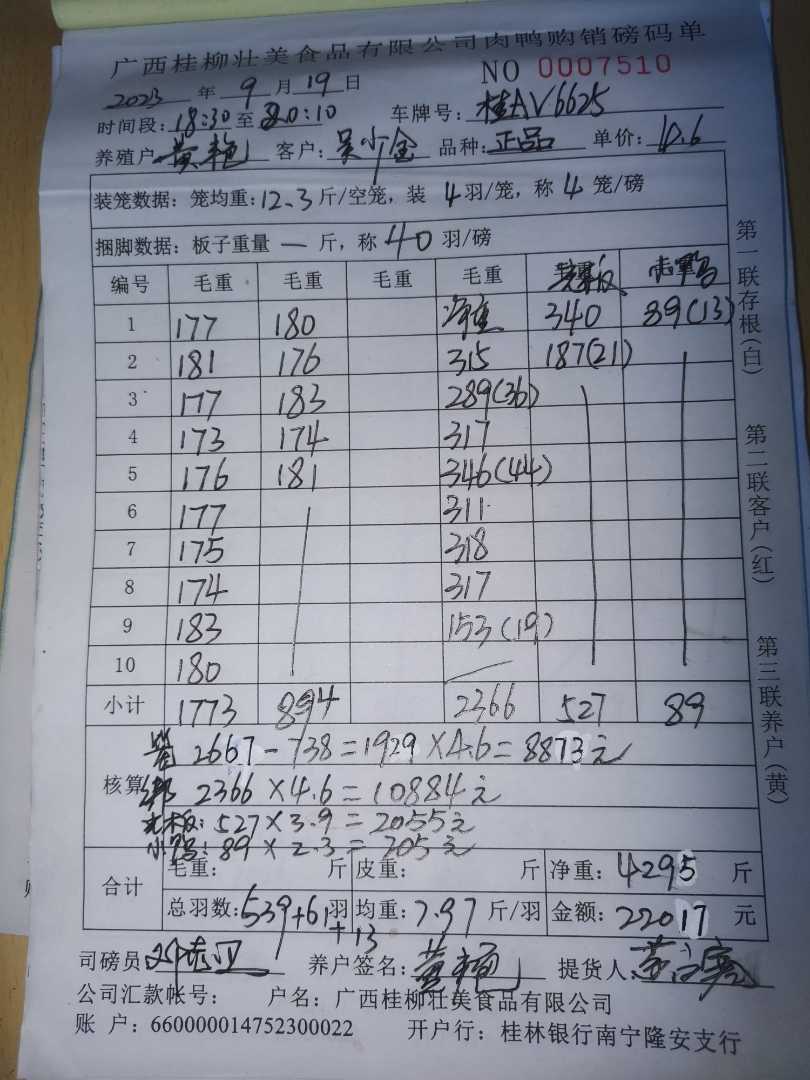 广西桂柳壮美食品有限公司肉鸭购销磅码单
NO 0007510
2023 年 9 月 19 日
时间段: 18:30 至 20:10 车牌号: 桂AV6625
养殖户 黄艳 客户: 吴少金 品种: 正品 单价: 4.6
装笼数据: 笼均重: 12.3 斤/空笼, 装 4 羽/笼, 称 4 笼/磅
捆脚数据: 板子重量 — 斤, 称 40 羽/磅
编号 毛重 毛重 毛重 毛重
1 177 180 净重 340 89(13)
2 181 176 315 187(21)
3 177 183 289(36)
4 173 174 317
5 176 181 346(44)
6 177 311
7 175 318
8 174 317
9 183 153(19)
10 180
小计 1773 894 2366 527 89
核算
笼 2667-738=1929×4.6=8873元
绑 2366×4.6=10884元
527×3.9=2055元
89×2.3=205元
合计
毛重: 斤 皮重: 斤 净重: 4295 斤
总羽数: 539+61+13 羽 均重: 7.97 斤/羽 金额: 22017 元
司磅员 养户签名: 黄艳 提货人:
公司汇款帐号: 户名: 广西桂柳壮美食品有限公司
账 户: 660000014752300022 开户行: 桂林银行南宁隆安支行
第一联存根(白)
第二联客户(红)
第三联养户(黄)